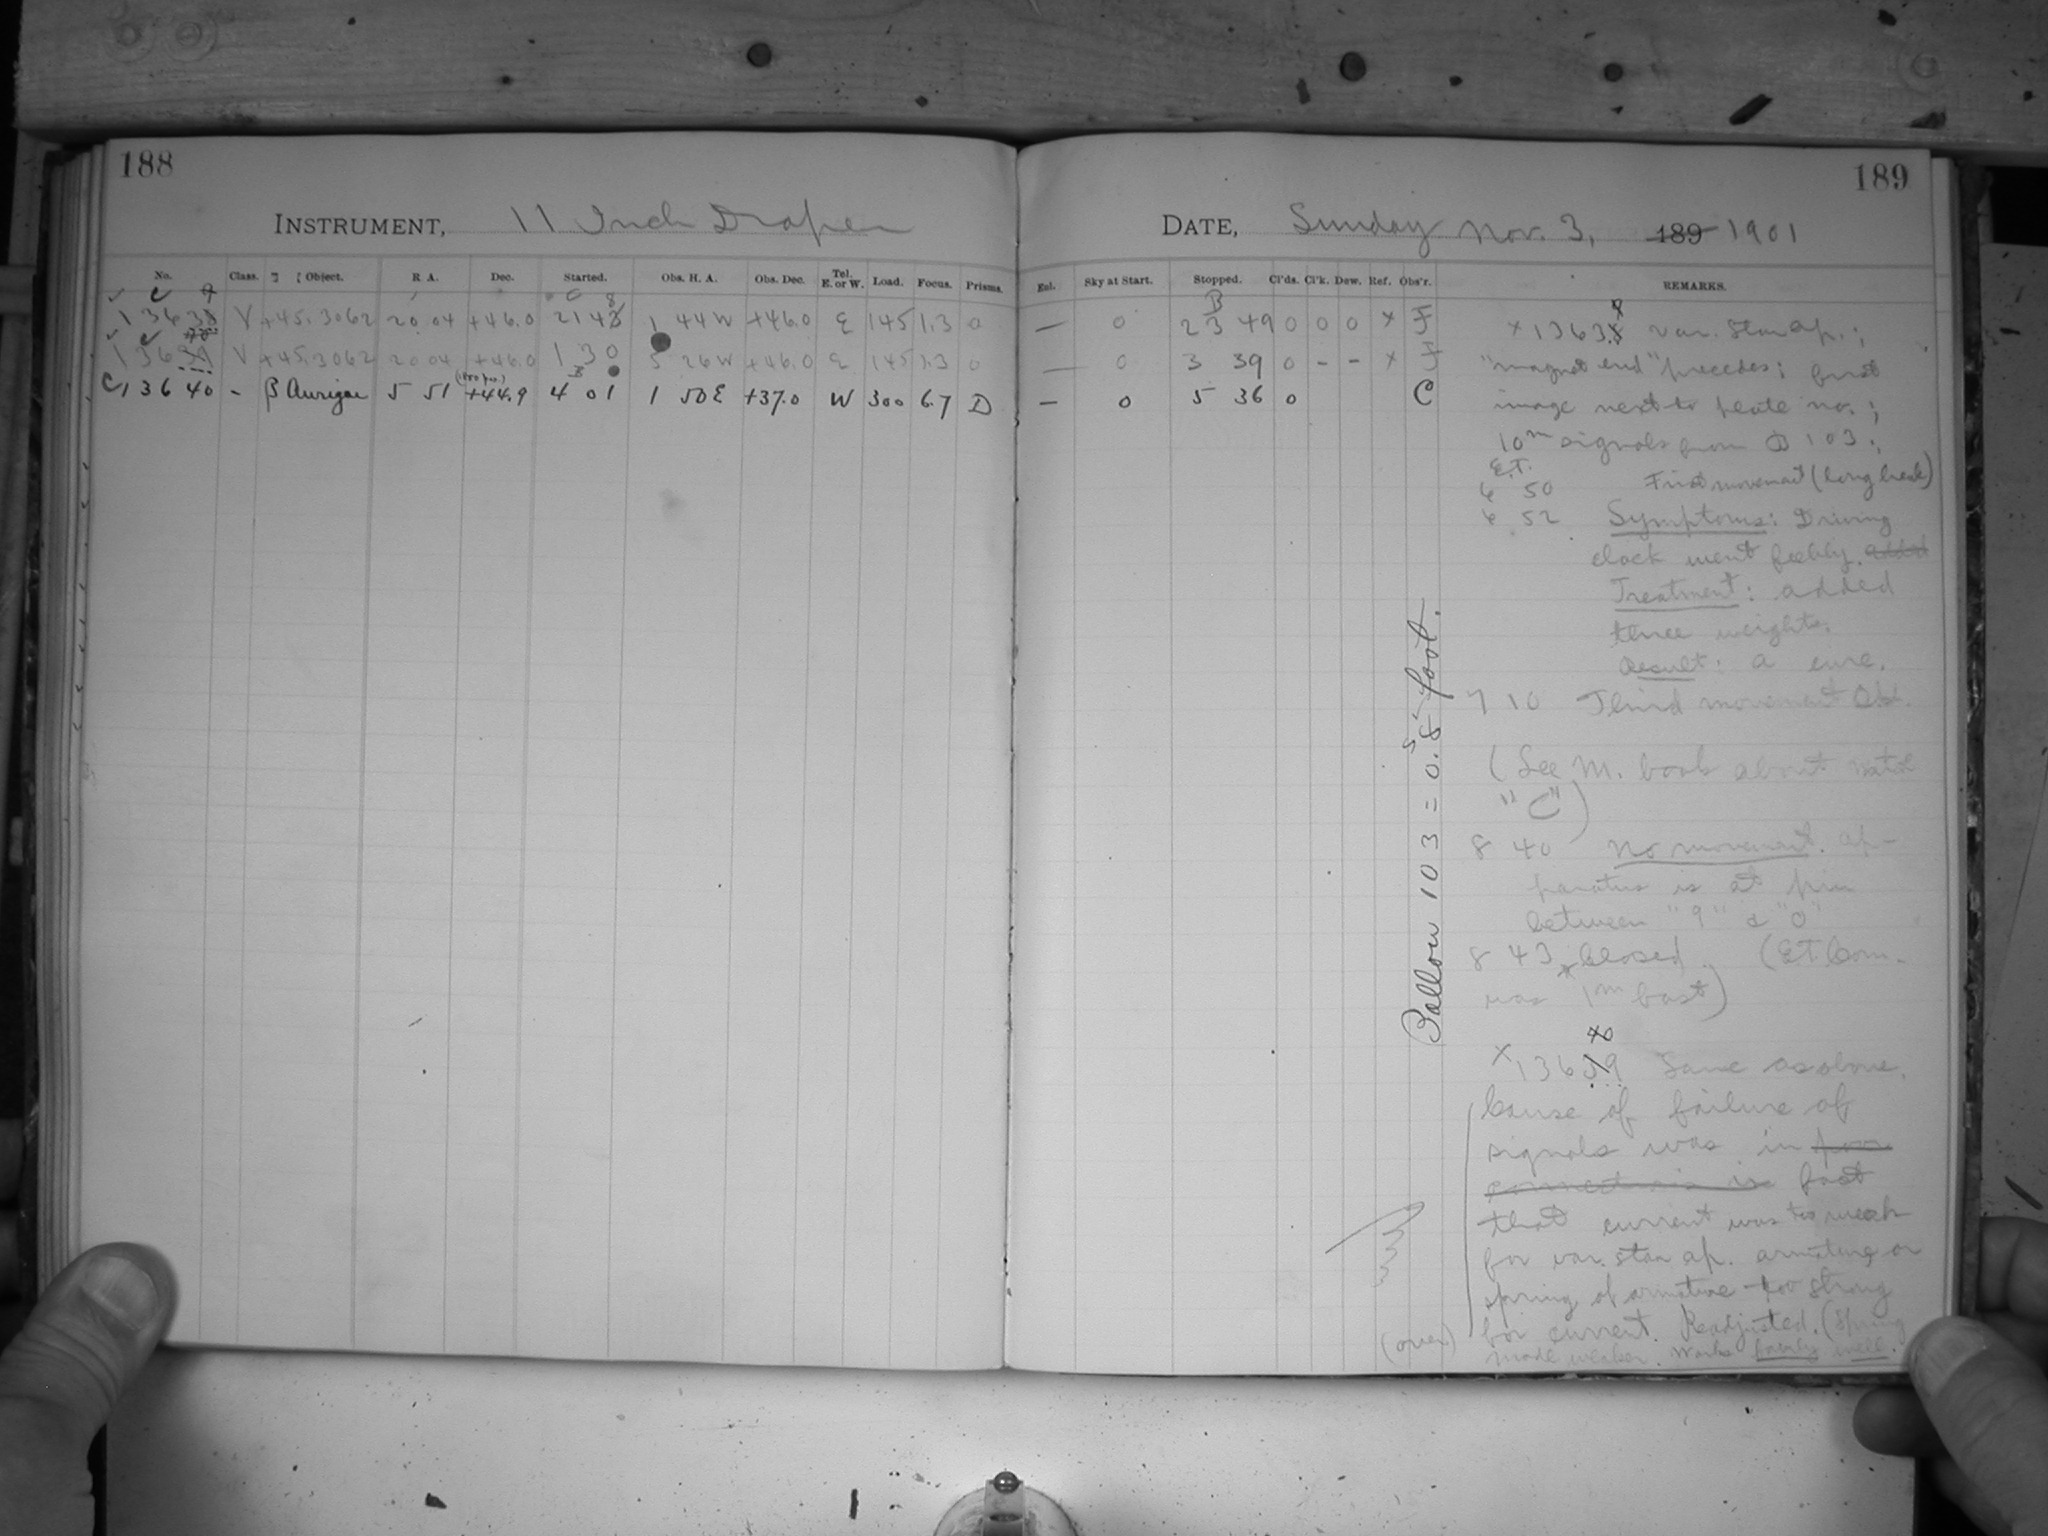 188
INSTRUMENT, 11 Inch Draper
No. Class. Object. R A. Dec. Started. Obs. H. A. Obs. Dec. Tel. E. or W. Load. Focus. Prisms.
V +45.3062 20 04 +46.0 1 44 W +46.0 E 145 1.3 0
V +45.3062 20 04 +46.0 1 30 5 26 W +46.0 E 145 1.3 0
C 13640 - β Aurigae 5 51 +44.9 4 01 1 50 E +37.0 W 300 6.7 D
189
DATE, Sunday Nov. 3, 189 1901
Exl. Sky at Start. Stopped. Cl'ds. Cl'k. Dew. Ref. Obs'r. REMARKS.
— 0 23 49 0 0 0 x F
— 0 3 39 0 - - x F
— 0 5 36 0 C
var. star ap.;
"magnet end" precedes; first
image next to plate no.;
10m signals from B 103;
E.T.
6 50 First movement (long break)
6 52 Symptoms: Driving
clock went feebly. added
Treatment: added
three weights.
Result: a cure.
7 10 Third movement Ok.
(See M. book about watch
"C")
8 40 No movement. Ap-
paratus is at pin
between "9" & "0"
8 43 closed. (ET Com.
was 1m fast)
Same as above.
Cause of failure of
signals was in poor
connections in fact
that current was too weak
for var. star ap. armature or
spring of armature too strong
for current. Readjusted. (Spring
made weaker. Works fairly well.
(over)
Ballou 103 = 0.8s foot.